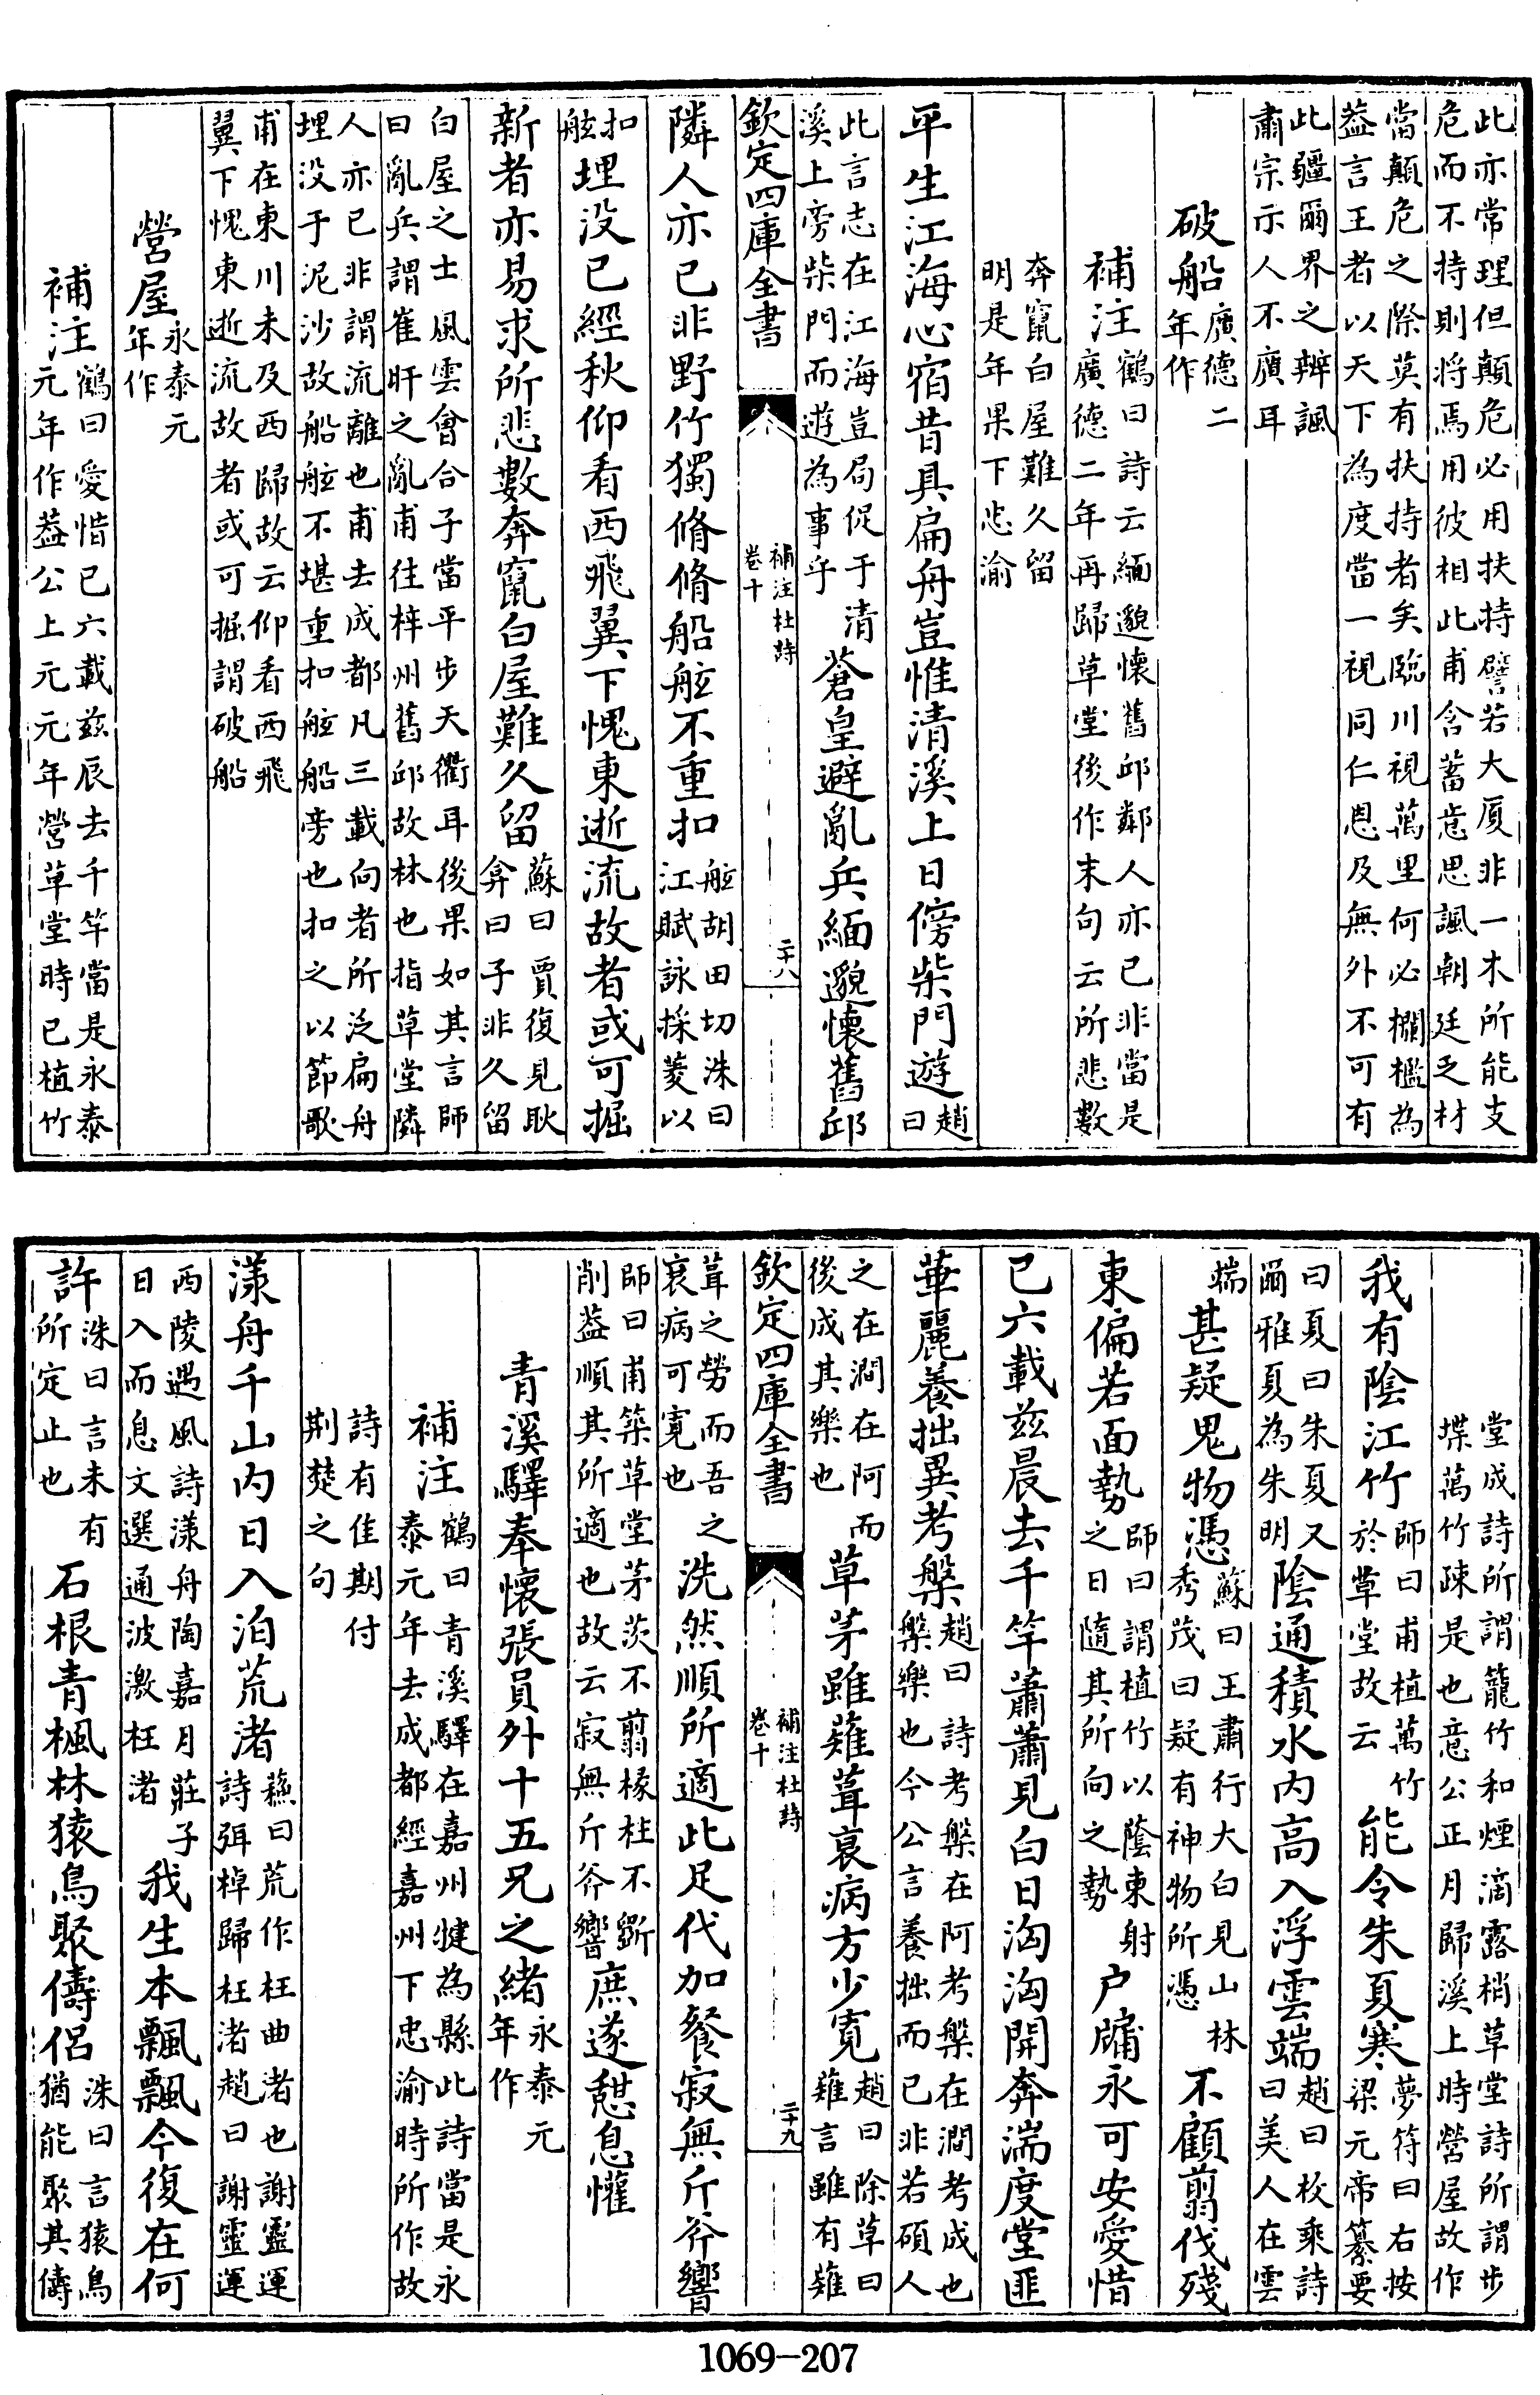 此亦常理但顛危必用扶持譬若大厦非一木所能支
危而不持則將焉用彼相此甫含蓄意思諷朝廷乏材
當顛危之際莫有扶持者矣臨川視萬里何必欄檻為
葢言王者以天下為度當一視同仁恩及無外不可有
此疆爾界之辨諷
肅宗示人不廣耳
破船廣德二
年作
補注鶴曰詩云緬邈懷舊邱鄰人亦已非當是
廣德二年再歸草堂後作末句云所悲數
奔竄白屋難久留
明是年果下忠渝
平生江海心宿昔具扁舟豈惟清溪上日傍柴門遊趙
曰
此言志在江海豈局促于清
溪上旁柴門而遊為事乎
蒼皇避亂兵緬邈懷舊邱
欽定四庫全書
補注杜詩
卷十
二十八
隣人亦已非野竹獨脩脩船舷不重扣舷胡田切洙曰
江賦詠採菱以
扣
舷埋没已經秋仰看西飛翼下愧東逝流故者或可掘
新者亦易求所悲數奔竄白屋難久留蘇曰賈復見耿
弇曰子非久留
白屋之士風雲會合子當平步天衢耳後果如其言師
曰亂兵謂崔旰之亂甫往梓州舊邱故林也指草堂隣
人亦已非謂流離也甫去成都凡三載向者所泛扁舟
埋没于泥沙故船舷不堪重扣舷船旁也扣之以節歌
甫在東川未及西歸故云仰看西飛
翼下愧東逝流故者或可掘謂破船
營屋永泰元
年作
補注鶴曰愛惜已六載兹辰去千竿當是永泰
元年作葢公上元元年營草堂時已植竹
堂成詩所謂籠竹和煙滴露梢草堂詩所謂步
堞萬竹疎是也意公正月歸溪上時營屋故作
我有陰江竹師曰甫植萬竹
於草堂故云
能令朱夏寒夢符曰右按
梁元帝纂要
曰夏曰朱夏又
爾雅夏為朱明
陰通積水内高入浮雲端趙曰枚乘詩
曰美人在雲
端
甚疑鬼物憑蘇曰王肅行大白見山林
秀茂曰疑有神物所憑
不顧翦伐殘
東偏若面勢師曰謂植竹以蔭東射
之日隨其所向之勢
户牖永可安愛惜
已六載兹晨去千竿蕭蕭見白日洶洶開奔湍度堂匪
華麗養拙異考槃趙曰詩考槃在阿考槃在澗考成也
槃樂也今公言養拙而已非若碩人
之在澗在阿而
後成其樂也
草茅雖薙葺衰病方少寛趙曰除草曰
薙言雖有薙
欽定四庫全書
補注杜詩
卷十
二十九
葺之勞而吾之
衰病可寛也
洗然順所適此足代加餐寂無斤斧響
師曰甫築草堂茅茨不翦椽柱不斵
削葢順其所適也故云寂無斤斧響
庶遂憩息懽
青溪驛奉懷張員外十五兄之緒永泰元
年作
補注鶴曰青溪驛在嘉州犍為縣此詩當是永
泰元年去成都經嘉州下忠渝時所作故
詩有佳期付
荆楚之句
漾舟千山内日入泊荒渚蘓曰荒作枉曲渚也謝靈運
詩弭棹歸枉渚趙曰謝靈運
西陵遇風詩漾舟陶嘉月莊子
日入而息文選通波激枉渚
我生本飄飄今復在何
許洙曰言未有
所定止也
石根青楓林猿鳥聚儔侣洙曰言猿鳥
猶能聚其儔
1069—207